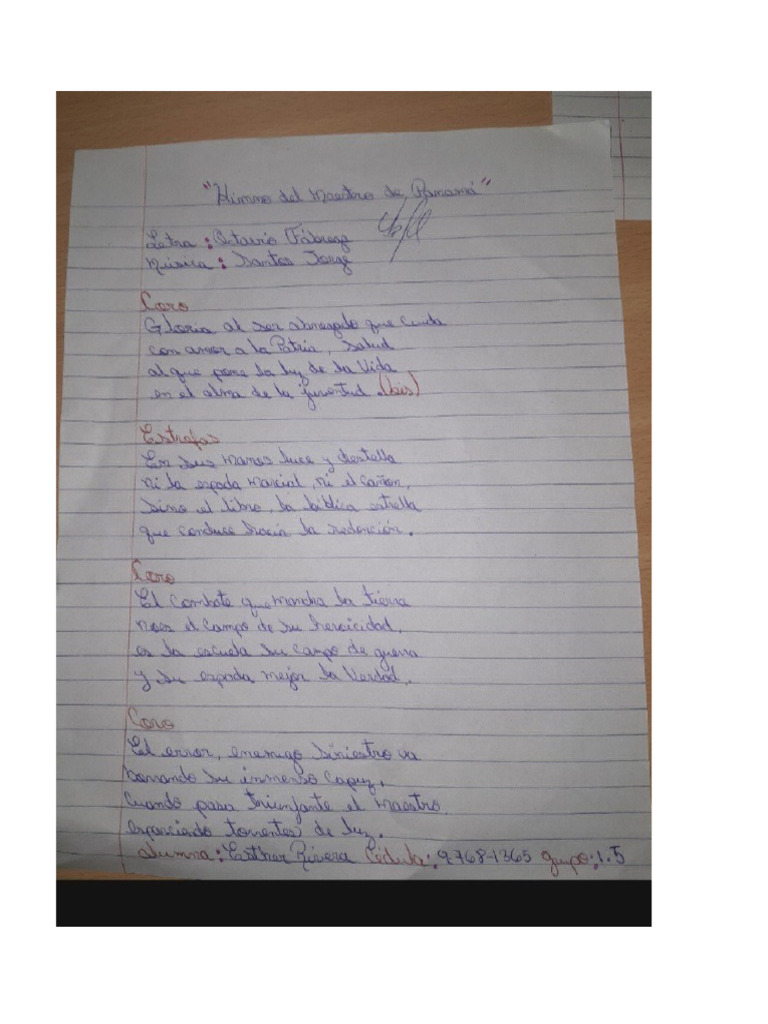 "Himno del Maestro de Panamá"
Letra : Octavio Fábrega
Música : Santos Jorge
Coro
Gloria al ser abnegado que cuida
con amor a la Patria, Salud
al que pone la luz de la Vida
en el alma de la juventud. (bis)
Estrofas
En sus manos luce y destella
ni la espada marcial, ni el cañón,
sino el libro, la bíblica estrella
que conduce hacia la redención.
Coro
El combate que mancha la tierra
no es el campo de su heroicidad,
es la escuela su campo de guerra
y su espada mejor la Verdad.
Coro
El error, enemigo siniestro va
borrando su inmenso capuz,
cuando pasa triunfante el maestro
esparciendo torrentes de luz.
alumna : Esther Rivera Cédula : 9-768-1365 grupo : 1.5